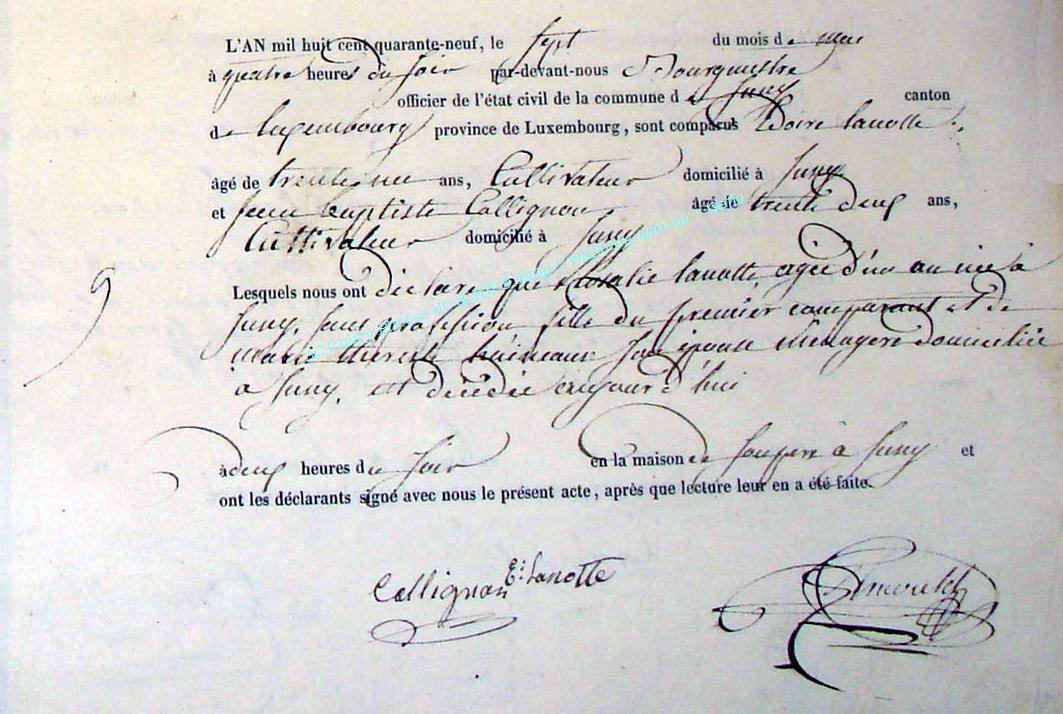 L'AN mil huit cent quarante-neuf, le sept du mois de mai
à quatre heures du soir par-devant-nous Bourgmestre
officier de l'état civil de la commune de Suny canton
de luxembourg province de Luxembourg, sont comparus lanotte
âgé de ans, Cultivateur domicilié à Suny
et jean baptiste Collignon âgé de trente deux ans,
Cultivateur domicilié à Suny
9
Lesquels nous ont déclaré que Rosalie lanotte, agée d'un an née à
Suny, sans profession fille du premier comparant et de
marie therese son épouse ménagere domiciliée
à Suny, est décédée aujourd'hui
à deux heures du soir en la maison de son père à Suny et
ont les déclarants signé avec nous le présent acte, après que lecture leur en a été faite.
Collignon E: Lanotte